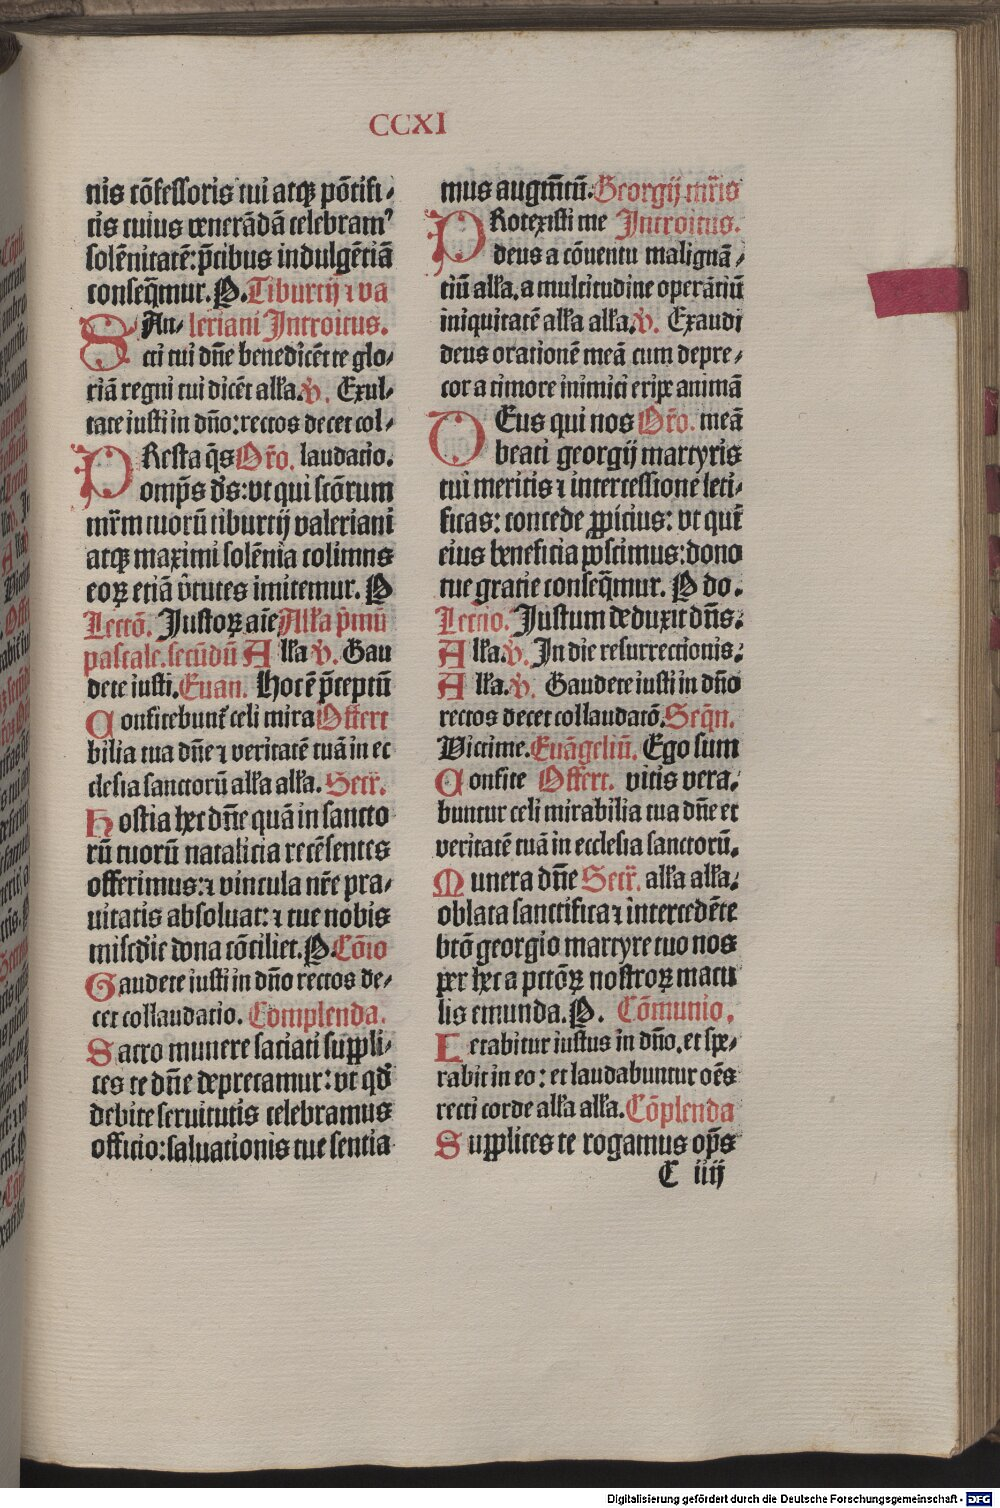 CCXI
nis cõfessoris tui atqꝫ põtifi-
cis cuius venerãdã celebramꝰ
solẽnitatẽ: p̃cibus indulgẽtiã
conseq̃mur. P. Tiburcij ⁊ va
SAn- leriani Introitus.
cti tui dñe benedicẽt te glo-
riã regni tui dicẽt alla. v. Exul-
tate iusti in dño: rectos decet col-
PResta q̃s Or̃o. laudatio.
omp̃s d̃s: vt qui sctõrum
mr̃m tuorũ tiburcij valeriani
atqꝫ maximi solẽnia colimus
eoꝝ etiã ṽtutes imitemur. P
Lectõ. Justoꝝ aĩe Alla p̃mũ
pascale. secũdũ Alla v. Gau
dete iusti. Euan. Hoc ẽ p̃ceptũ
Confitebunt̃ celi mira Offert
bilia tua dñe ⁊ veritatẽ tuã in ec
clesia sanctorũ alla alla. Secr̃.
Hostia hec dñe quã in sancto
rũ tuorũ natalicia recẽsentes
offerimus: ⁊ vincula nr̃e pra-
uitatis absoluat: ⁊ tue nobis
miscd̃ie dona cõciliet. P. Cõio
Gaudete iusti in dño rectos de-
cet collaudatio. Complenda.
Sacro munere saciati suppli-
ces te dñe deprecamur: vt qd̃
debite seruitutis celebramus
officio: saluationis tue sentia
mus augm̃tũ. Georgij mr̃is
PRotexisti me Introitus.
deus a cõuentu malignã-
tiũ alla. a multitudine operãtiũ
iniquitatẽ alla alla. v. Exaudi
deus orationẽ meã cum depre-
cor a timore inimici eripe animã
DEus qui nos Or̃o. meã
beati georgij martyris
tui meritis ⁊ intercessione leti-
ficas: concede ꝓpicius: vt qui
eius beneficia poscimus: dono
tue gratie conseq̃mur. P do.
Lectio. Justum deduxit dñs.
Alla. v. In die resurrectionis.
Alla. v. Gaudete iusti in dño
rectos decet collaudatõ. Seq̃n.
Victime. Euãgeliũ. Ego sum
Confite Offert. vitis vera.
buntur celi mirabilia tua dñe et
veritatẽ tuã in ecclesia sanctorũ.
Munera dñe Secr̃. alla alla.
oblata sanctifica ⁊ intercedẽte
btõ georgio martyre tuo nos
per hec a pctõꝝ nostroꝝ macu
lis emunda. P. Cõmunio.
Letabitur iustus in dño. et spe-
rabit in eo: et laudabuntur oẽs
recti corde alla alla. Cõplenda
Supplices te rogamus op̃s
C iiij
Digitalisierung gefördert durch die Deutsche Forschungsgemeinschaft - DFG